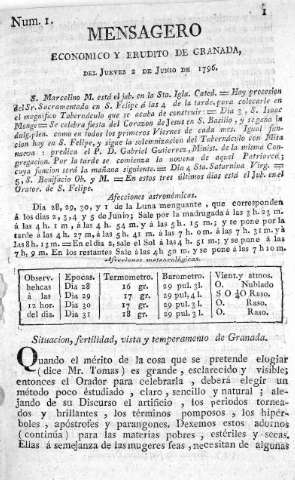 Num. 1.
1
MENSAGERO
ECONOMICO Y ERUDITO DE GRANADA,
DEL JUEVES 2 DE JUNIO DE 1796.
S. Marcelino M. está el jub. en la Sta. Igla. Cated. = Hoy procesion
del Sr. Sacramentado en S. Felipe á las 4 de la tarde, para colocarle en
el magnifico Tabernáculo que se acaba de construir = Dia 3, S. Isaac
Monge = Se celebra fiesta del Corazon de Jesus en S. Basilio, y segano la
Indulg. plen. como en todos los primeros Viernes de cada mes. Igual fun-
cion hoy en S. Felipe, y sigue la solemnizacion del Tabernáculo con Misa
nueva: predica el P. D. Gabriel Gutierrez, Minist. de la misma Con-
gregacion. Por la tarde se comienza la novena de aquel Patriarca;
cuya funcion será la mañana siguiente. = Dia 4 Sta. Saturnina Virg. =
5, S. Bonifacio Ob. y M. = En estos tres últimos dias está el Jub. en el
Orator. de S. Felipe.
Afecciones astronómicas.
Dia 28, 29, 30, y 1 de la Luna menguante, que corresponden
á los dias 2, 3, 4 y 5 de Junio; Sale por la madrugada á las 3 h. 23 m.
á las 4 h. 1 m, á las 4 h. 54 m. y á las 5 h. 15 m.; y se pone por la
tarde á las 4 h. 42 m. á las 5 h. 41 m. á las 7 h. 0m. á las 7 h. 31 m. y á
las 8 h. 13 m. = En el dia 2, sale el Sol á las 4 h. 51 m.; y se pone á las
7 h, 9 m. En los restantes Sale á las 4 h 50 m. y se pone á las 7 h 10 m
Afecciones meteorológicas.
Observ. Epocas. Termometro. Barometro. Vient. y atmos.
hehcas Dia 28 16 gr. 29 pul. 3 l. O. Nublado
á las Dia 29 17 gr. 29 pul. 4 l. S O ¼ O Raso.
12 hor. Dia 30 17 gr. 29 pul. 3 l. O. Raso.
del dia. Dia 31 18 gr. 29 pul. 3 l. O. Raso.
Situacion, fertilidad, vista y temperamento de Granada.
Quando el mérito de la cosa que se pretende elogiar
(dice Mr. Tomas) es grande, esclarecido y visible;
entonces el Orador para celebrarla, deberá elegir un
método poco estudiado, claro, sencillo y natural; ale-
jando de su Discurso el artificio, los periodos tornea-
dos y brillantes, los términos pomposos, los hipér-
boles, apóstrofes y parangones. Dexemos estos adornos
(continúa) para las materias pobres, estériles y secas.
Ellas á semejanza de las mugeres feas, necesitan de algunas